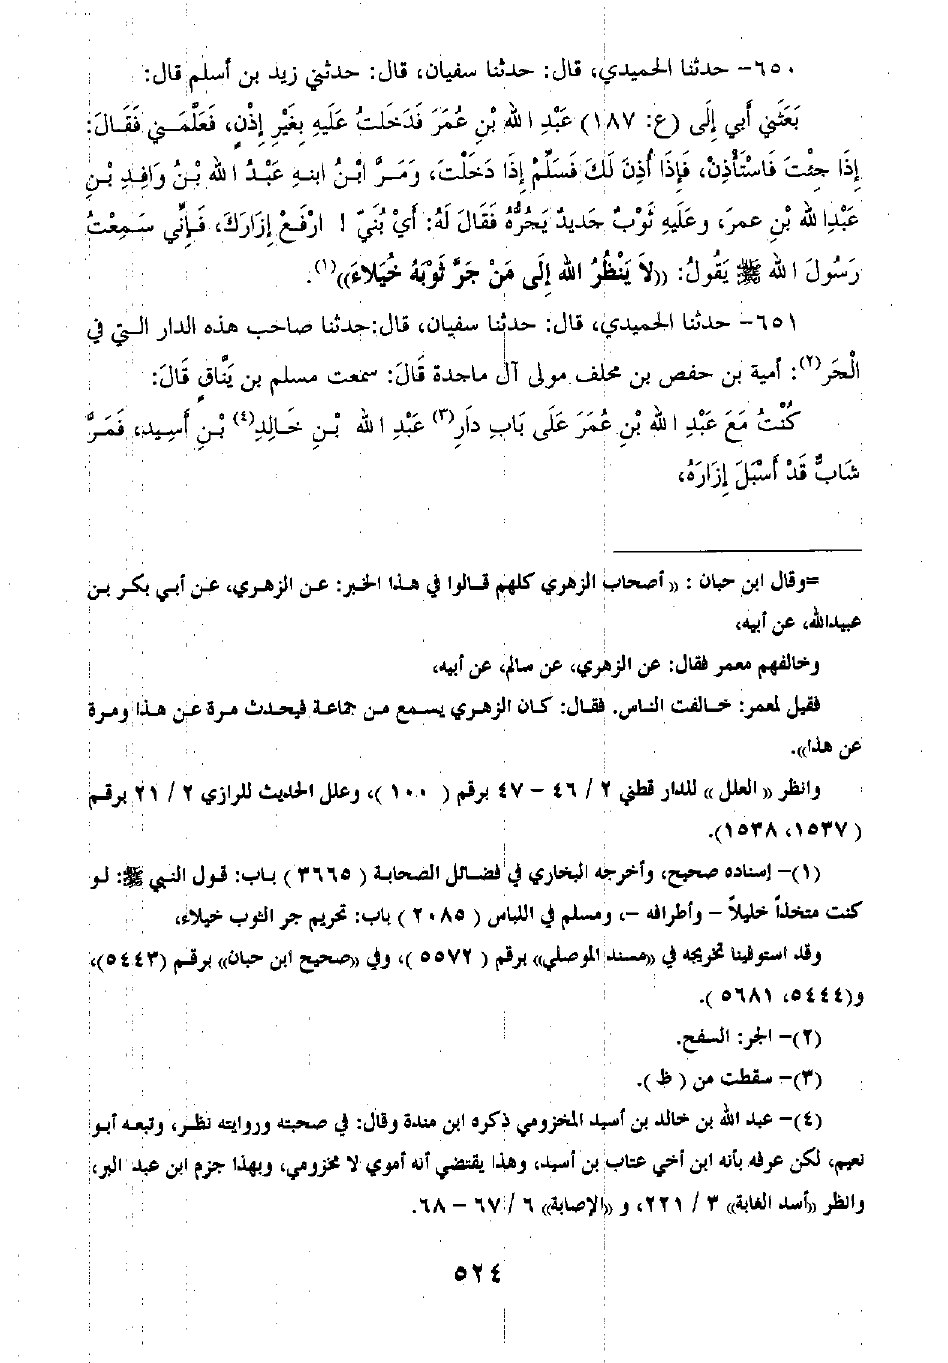 ٦٥٠- حدثنا الحميدي، قال: حدثنا سفيان، قال: حدثني زيد بن أسلم قال:
بَعَثَنِي أَبِي إِلَى (ع: ١٨٧) عَبْدِ اللهِ بْنِ عُمَرَ فَدَخَلتُ عَلَيهِ بِغَيْرِ إِذْنٍ، فَعَلَّمَنِي فَقَالَ:
إِذَا جِئْتَ فَاسْتَأْذِنْ، فَإِذَا أُذِنَ لَكَ فَسَلِّمْ إِذَا دَخَلْتَ، وَمَرَّ ابْنُ ابنهِ عَبْدُ اللهِ بْنُ وَاقِدِ بْنِ
عَبْدِاللهِ بْنِ عمرَ، وعَلَيهِ ثَوْبٌ جَدِيدٌ يَجُرُّهُ فَقَالَ لَهُ: أَيْ بُنَيّ ! ارْفَعْ إِزَارَكَ، فَإِنِّي سَمِعْتُ
رَسُولَ اللهِ ﷺ يَقُولُ: «لاَ يَنْظُرُ اللهُ إِلَى مَنْ جَرَّ ثَوْبَهُ خُيَلاءَ»(١).
٦٥١- حدثنا الحميدي، قال: حدثنا سفيان، قال:حدثنا صاحب هذه الدار التي في
الْجَر(٢): أمية بن حفص بن مخلف مولى آل ماجدة قَالَ: سمعت مسلم بن يَنَّاقٍ قَالَ:
كُنْتُ مَعَ عَبْدِ اللهِ بْنِ عُمَرَ عَلَى بَابِ دَارِ(٣) عَبْدِ اللهِ بْنِ خَالِدِ(٤) بْنِ أَسِيد، فَمَرَّ
شَابٌّ قَدْ أَسْبَلَ إِزَارَهُ،
=وقال ابن حبان : «أصحاب الزهري كلهم قالوا في هذا الخبر: عن الزهري، عن أبي بكر بن
عبيدالله، عن أبيه،
وخالفهم معمر فقال: عن الزهري، عن سالم، عن أبيه،
فقيل لمعمر: خالفت الناس. فقال: كان الزهري يسمع من جماعة فيحدث مرة عن هذا ومرة
عن هذا».
وانظر « العلل » للدار قطني ٢ / ٤٦ - ٤٧ برقم ( ١٠٠ )، وعلل الحديث للرازي ٢ / ٢١ برقم
( ١٥٣٧، ١٥٣٨).
(١)- إسناده صحيح، وأخرجه البخاري في فضائل الصحابة ( ٣٦٦٥ ) باب: قول النبي ﷺ: لو
كنت متخذاً خليلاً - وأطرافه -، ومسلم في اللباس ( ٢٠٨٥ ) باب: تحريم جر الثوب خيلاء،
وقد استوفينا تخريجه في «مسند الموصلي» برقم ( ٥٥٧٢ )، وفي «صحيح ابن حبان» برقم (٥٤٤٣)،
و(٥٤٤٤، ٥٦٨١ ).
(٢)- الجر: السفح.
(٣)- سقطت من ( ظ ).
(٤)- عبد الله بن خالد بن أسيد المخزومي ذكره ابن مندة وقال: في صحبته وروايته نظر، وتبعه أبو
نعيم، لكن عرفه بأنه ابن أخي عتاب بن أسيد، وهذا يقتضي أنه أموي لا مخزومي، وبهذا جزم ابن عبد البر،
وانظر «أسد الغابة» ٣ / ٢٢١، و «الإصابة» ٦ / ٦٧ - ٦٨.
٥٢٤